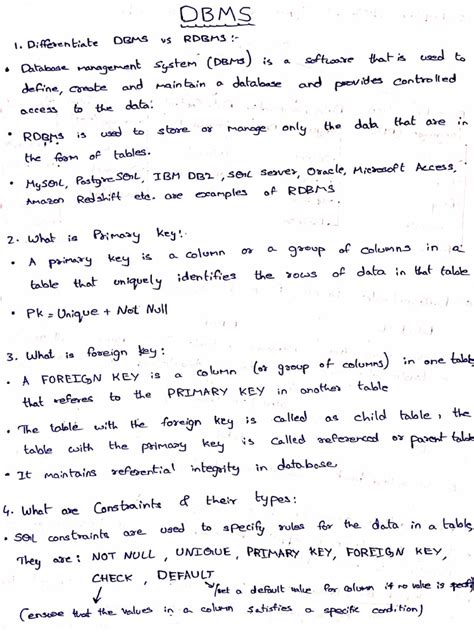 DBMS
1. Differentiate DBMS vs RDBMS :-
• Database management system (DBMS) is a software that is used to
define, create and maintain a database and provides controlled
access to the data.
• RDBMS is used to store or manage only the data that are in
the form of tables.
• MySQL, PostgreSQL, IBM DB2, SQL Server, Oracle, Microsoft Access,
Amazon Redshift etc. are examples of RDBMS
2. What is Primary key:-
• A primary key is a column or a group of columns in a
table that uniquely identifies the rows of data in that table
• Pk = Unique + Not Null
3. What is foreign key :
• A FOREIGN KEY is a column (or group of columns) in one table
that referes to the PRIMARY KEY in another table
• The table with the foreign key is called as child table, the
table with the primary key is called referenced or parent table
• It maintains referential integrity in database
4. What are Constraints & their types:
• SQL constraints are used to specify rules for the data in a table,
They are : NOT NULL, UNIQUE, PRIMARY KEY, FOREIGN KEY,
CHECK, DEFAULT
set a default value for column if no value is specify
(ensure that the values in a column satisfies a specific condition)